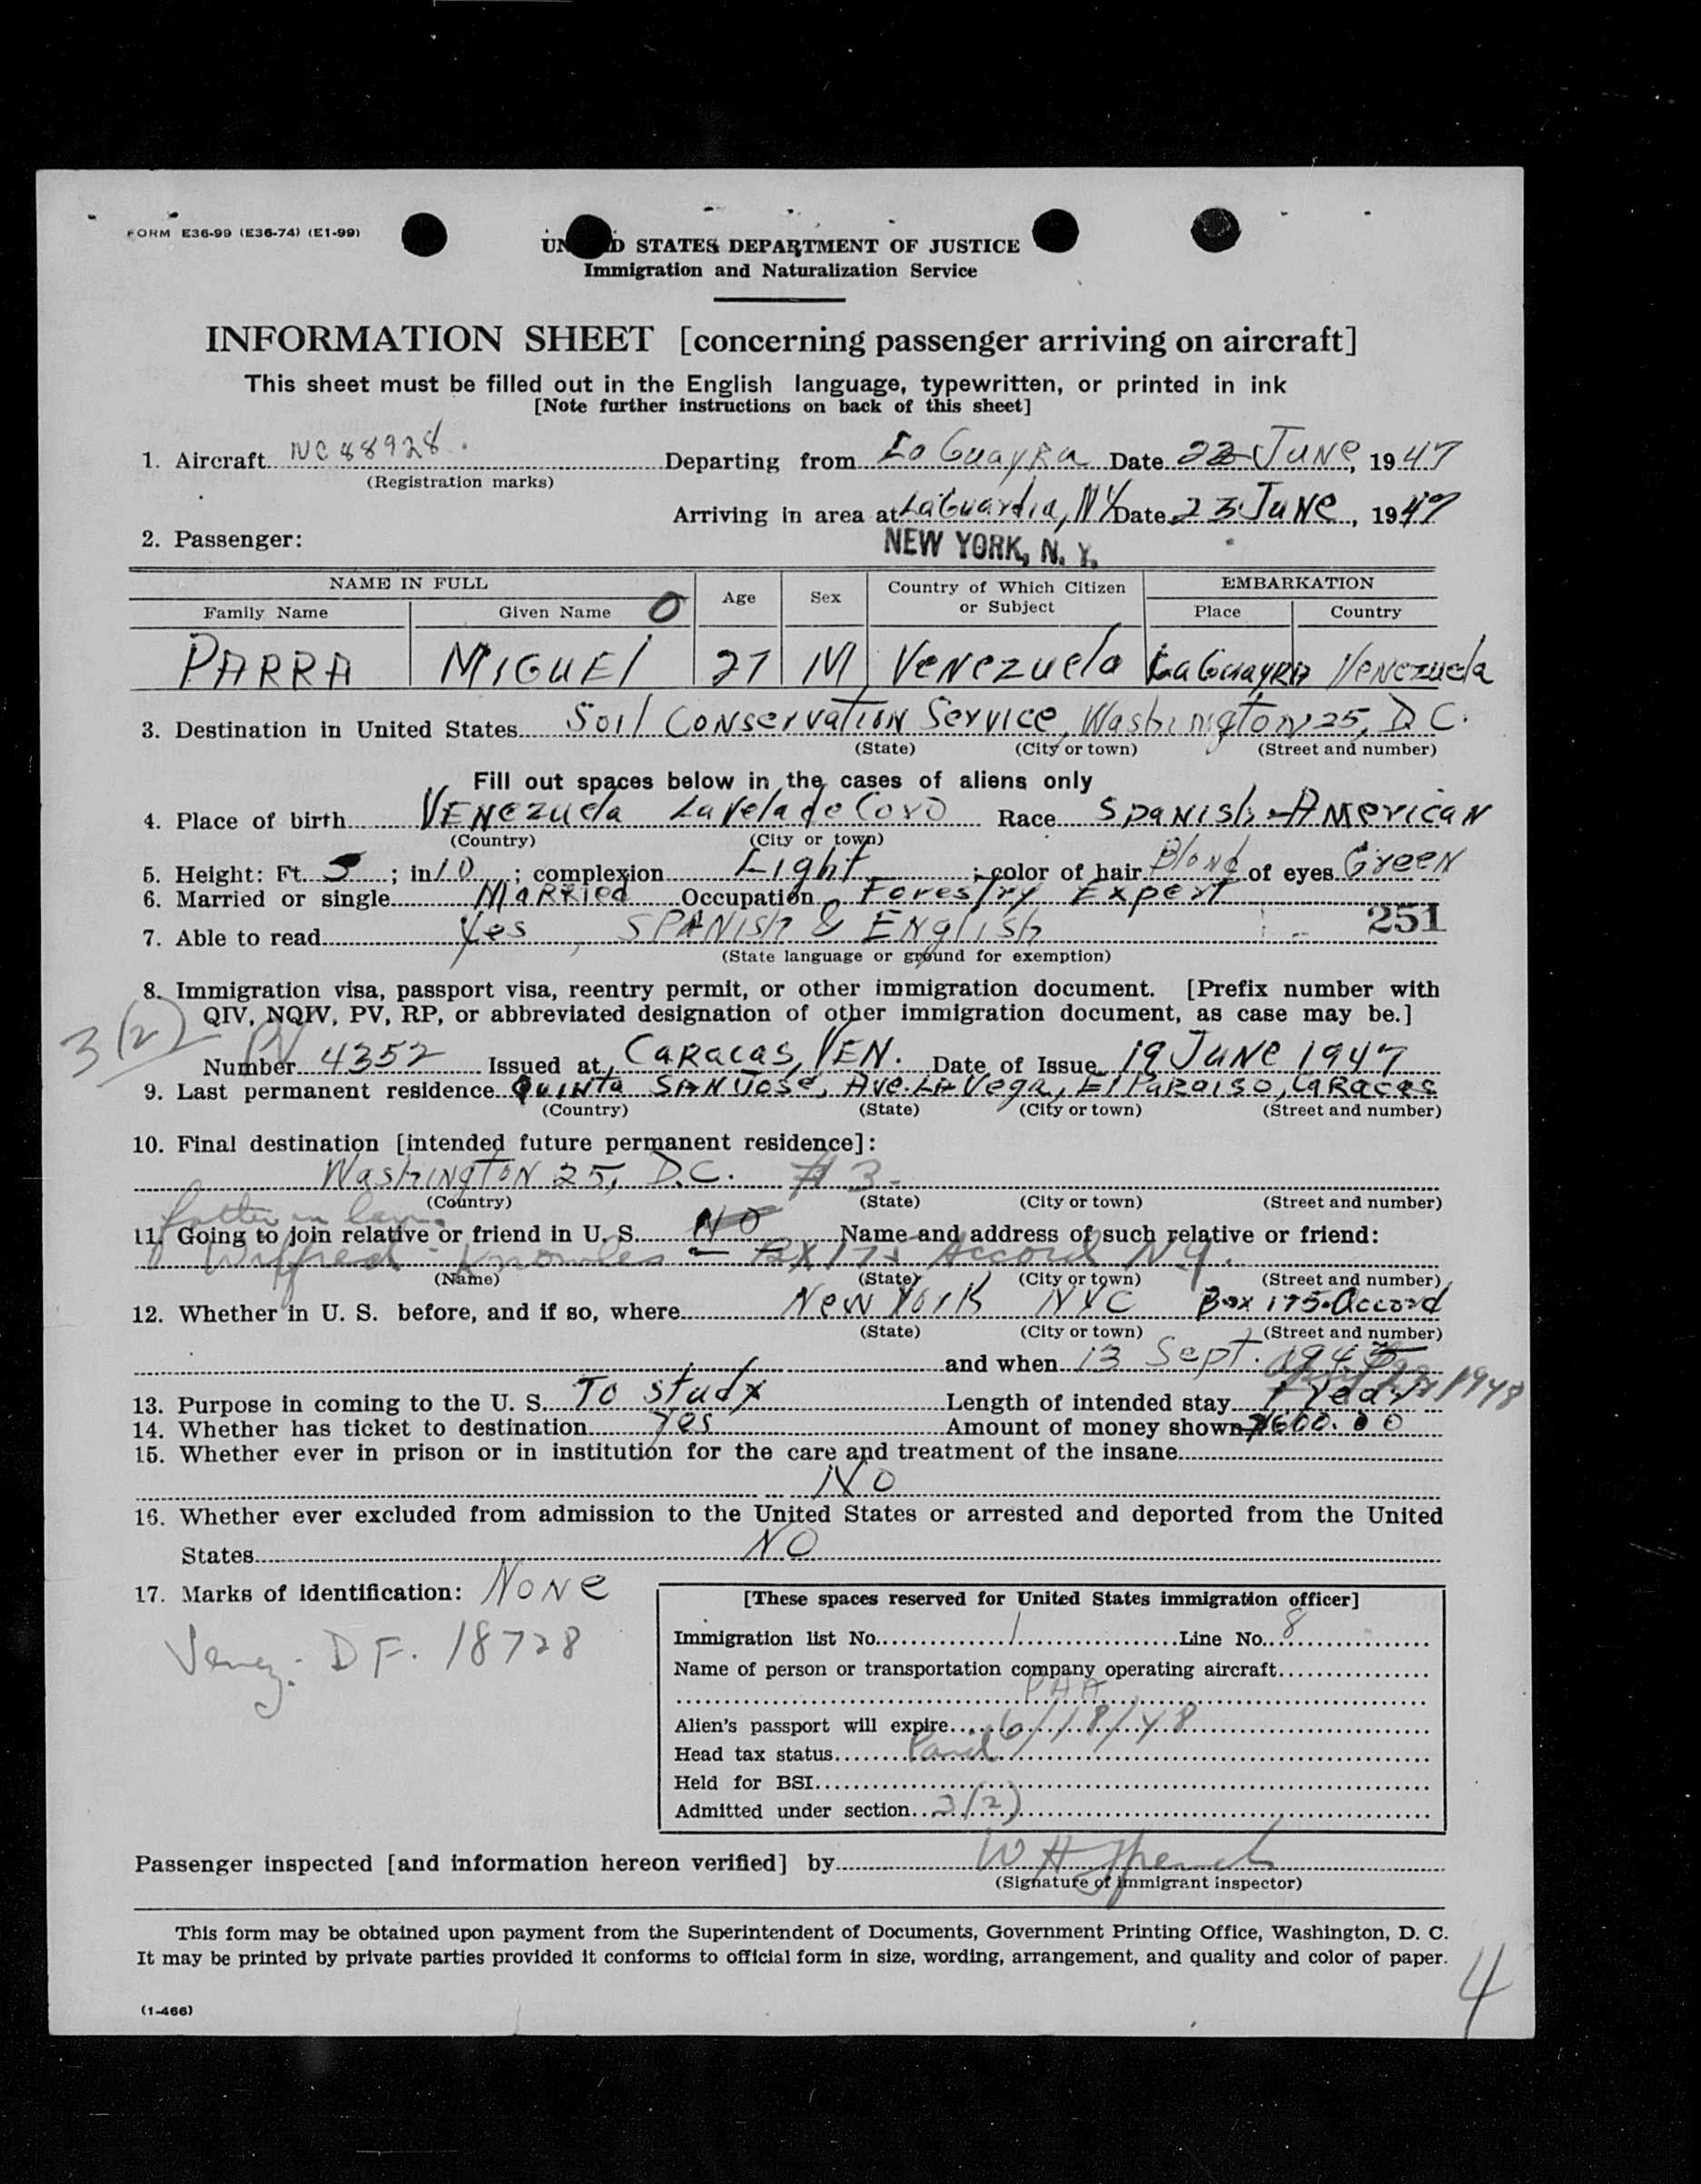 FORM E36-99 (E36-74) (E1-99)
UN D STATES DEPARTMENT OF JUSTICE
Immigration and Naturalization Service
INFORMATION SHEET [concerning passenger arriving on aircraft]
This sheet must be filled out in the English language, typewritten, or printed in ink
[Note further instructions on back of this sheet]
1. Aircraft NC 88928. Departing from La Guayra Date 22 June, 1947
(Registration marks)
Arriving in area at LaGuardia, NY Date 23 June, 1947
2. Passenger: NEW YORK, N. Y.
NAME IN FULL Age Sex Country of Which Citizen or Subject EMBARKATION
Family Name Given Name O Place Country
PARRA MIGUEl 27 M Venezuela La Guayra Venezuela
3. Destination in United States Soil Conservation Service, Washington 25, D.C.
(State) (City or town) (Street and number)
Fill out spaces below in the cases of aliens only
4. Place of birth Venezuela La Vela de Coro Race Spanish-American
(Country) (City or town)
5. Height: Ft. 5; in 10; complexion Light; color of hair Blond of eyes Green
6. Married or single Married Occupation Forestry Expert
251
7. Able to read Yes, SPANish & ENglish
(State language or ground for exemption)
8. Immigration visa, passport visa, reentry permit, or other immigration document. [Prefix number with
QIV, NQIV, PV, RP, or abbreviated designation of other immigration document, as case may be.]
3(2) PV
Number 4352 Issued at Caracas, VEN. Date of Issue 19 June 1947
9. Last permanent residence Quinta San Jose, Ave. La Vega, El Paraiso, Caracas
(Country) (State) (City or town) (Street and number)
10. Final destination [intended future permanent residence]:
Washington 25, D.C. # 3-
(Country) (State) (City or town) (Street and number)
father in law
11. Going to join relative or friend in U. S. NO Name and address of such relative or friend:
Wilfred Knowles - BX 175 Accord N.Y.
(Name) (State) (City or town) (Street and number)
12. Whether in U. S. before, and if so, where New York NYC Box 175-Accord
(State) (City or town) (Street and number)
and when 13 Sept. 1945
13. Purpose in coming to the U. S. To study Length of intended stay 1 Year 1948
14. Whether has ticket to destination Yes Amount of money shown $600.00
15. Whether ever in prison or in institution for the care and treatment of the insane
NO
16. Whether ever excluded from admission to the United States or arrested and deported from the United
States NO
17. Marks of identification: None
Venez. DF. 18728
[These spaces reserved for United States immigration officer]
Immigration list No. 1 Line No. 8
Name of person or transportation company operating aircraft
PAA
Alien's passport will expire 6/18/48
Head tax status Paid
Held for BSI
Admitted under section 3(2)
Passenger inspected [and information hereon verified] by W H
(Signature of immigrant inspector)
This form may be obtained upon payment from the Superintendent of Documents, Government Printing Office, Washington, D. C.
It may be printed by private parties provided it conforms to official form in size, wording, arrangement, and quality and color of paper.
4
(1-466)